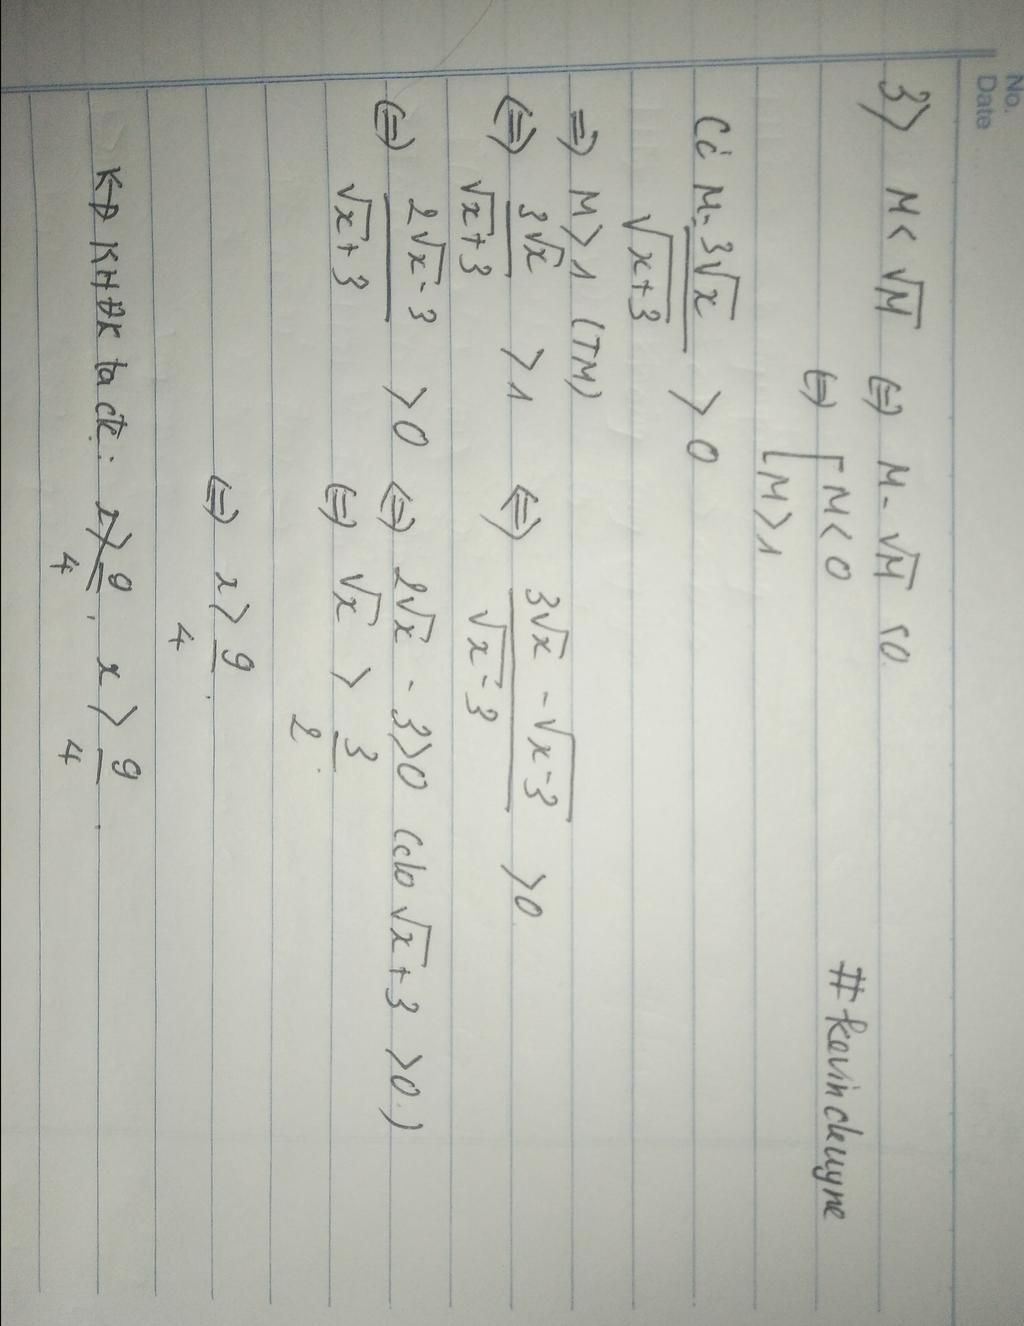 No.
Date
3) M < √M ⇔ M - √M < 0
⇔ [ M < 0
[ M > 1
#kevinchuyne
Có M = 3√x / √x+3 > 0
⇒ M > 1 (TM)
⇔ 3√x / √x+3 > 1 ⇔ 3√x - √x-3 / √x-3 > 0.
⇔ 2√x - 3 / √x+3 > 0 ⇔ 2√x - 3 > 0 (do √x+3 > 0.)
⇔ √x > 3/2.
⇔ x > 9/4.
KHĐK ta có: x > 9/4.